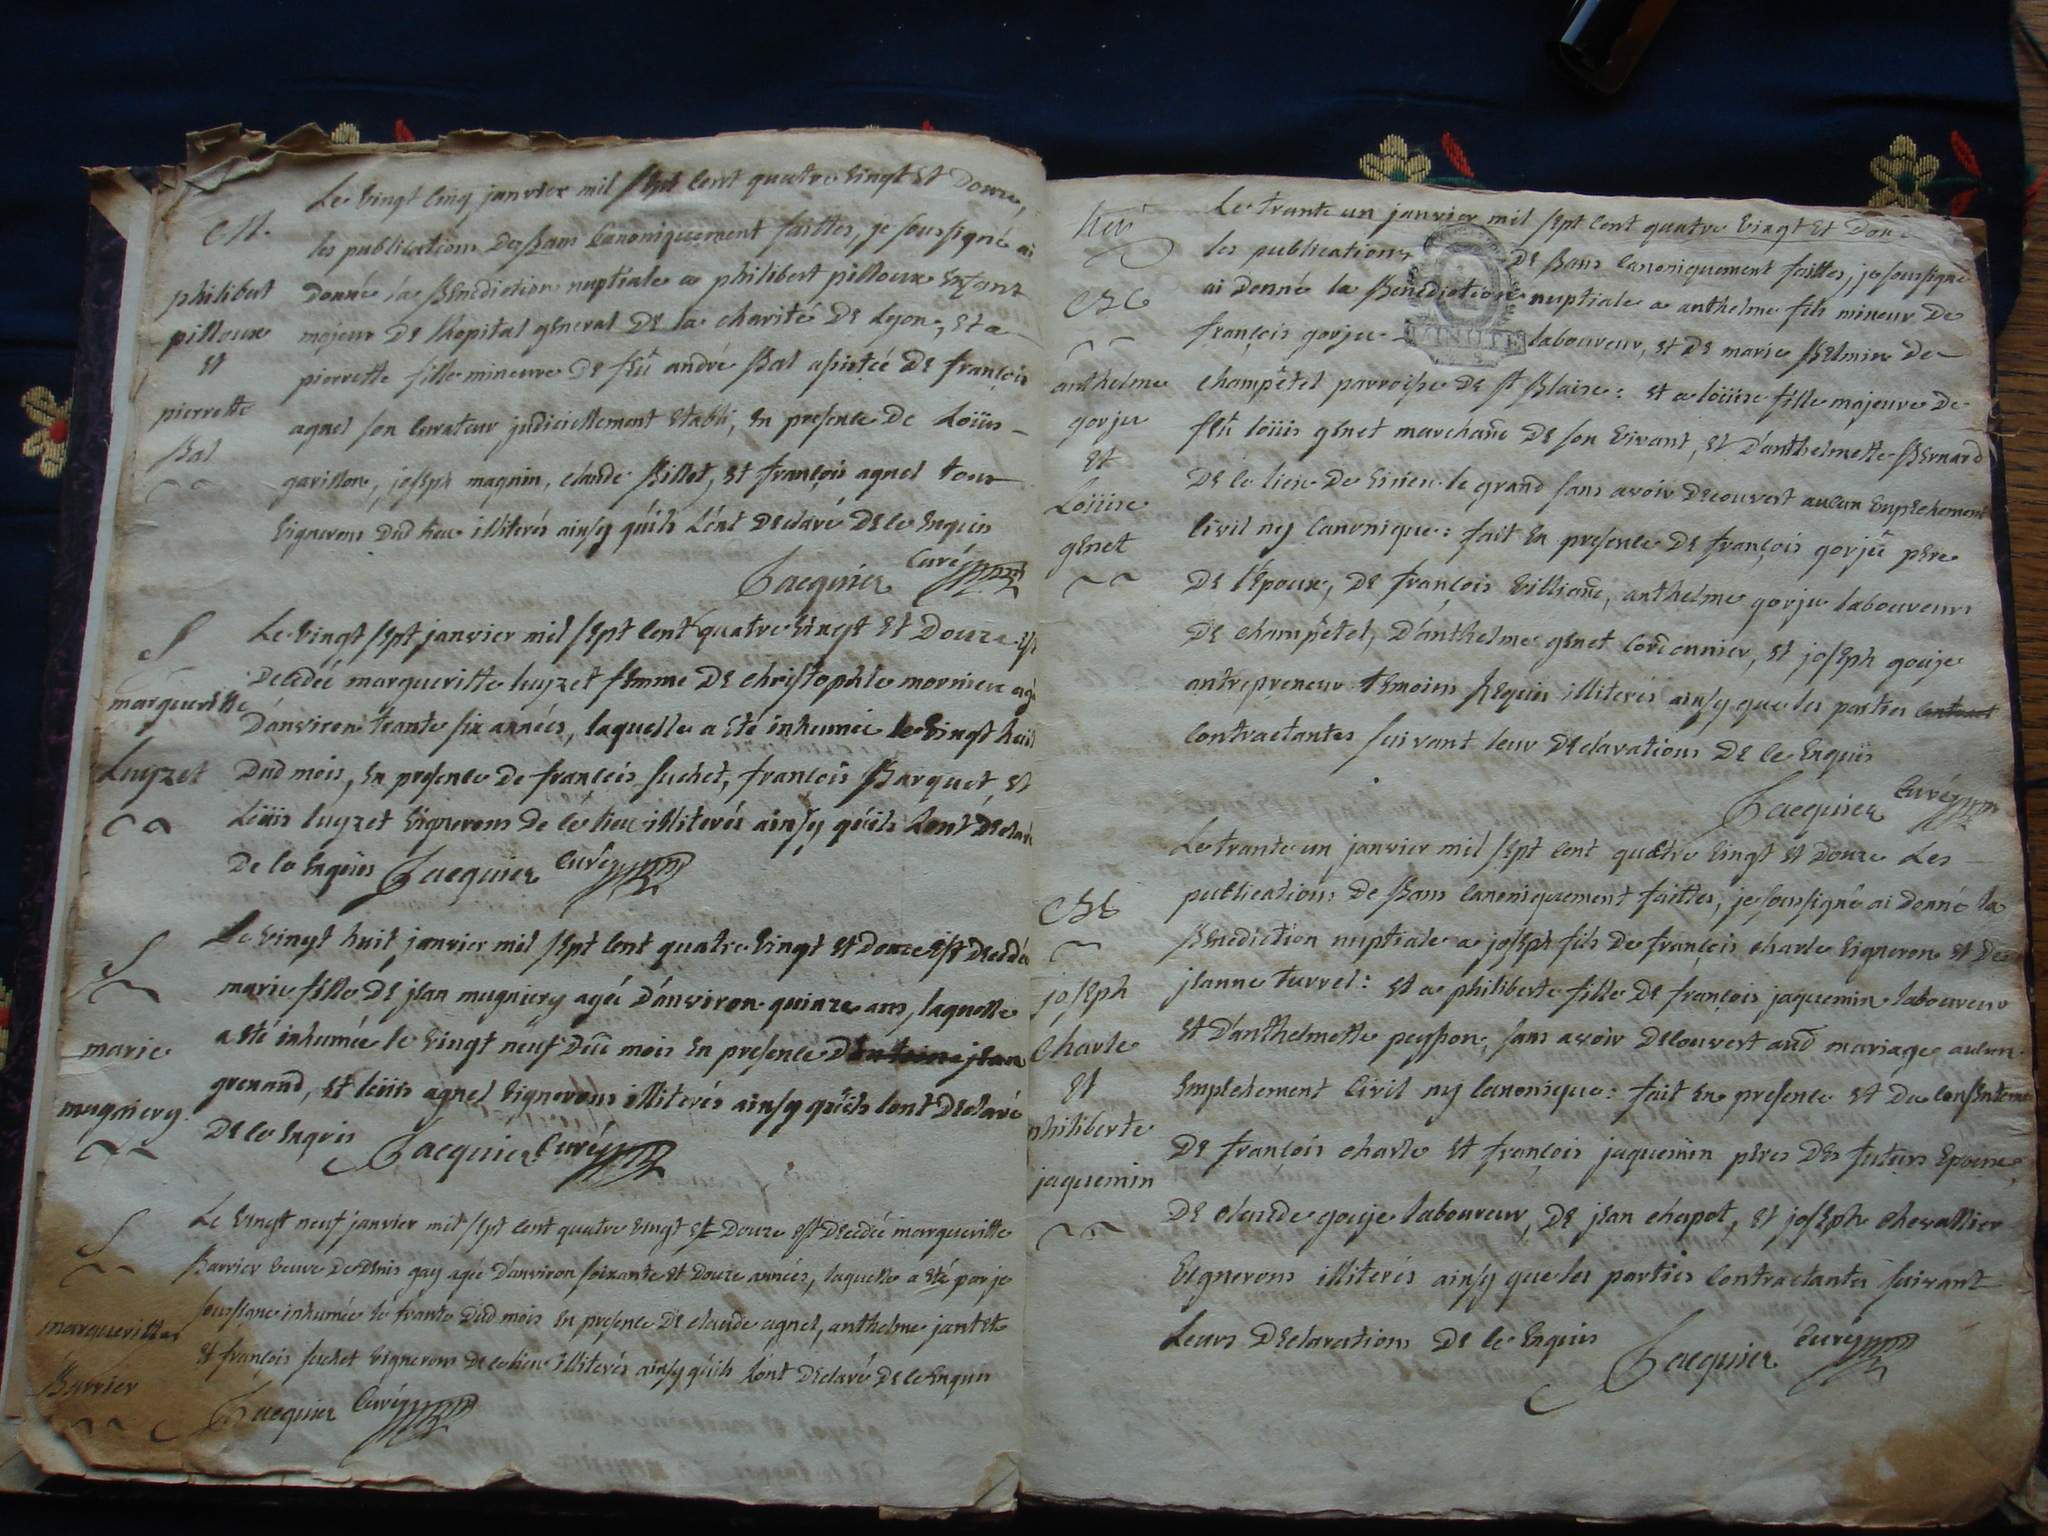 Le vingt cinq janvier mil sept cent quatre vingt et douze,
les publications des bans canoniquement faittes, je soussigné ai
donné la Benediction nuptiale a philibert pilloux enfant
majeur de l'hopital general de la charité de Lyon, et a
pierrette fille mineure de feû andré Bal assistée de françois
agnel son curateur judiciellement etabli, en presence de Loüis
garillon, joseph magnin, claude Billet, et françois agnel tous
vignerons dud lieu illiterés ainsy qu'ils l'ont declaré de ce enquis
Jacquier curé
M.
philibert
pilloux
et
pierrette
Bal
Le vingt sept janvier mil sept cent quatre vingt et douze est
decedée margueritte luyzet femme de christophle mornieu agée
d'anviron trante six années, laquelle a eté inhumée le vingt huit
dud mois, en presence de françois suchet, françois Barquet, et
Loüis luyzet vignerons de ce lieu illiterés ainsy qu'ils l'ont declaré
de ce enquis Jacquier curé
S
margueritte
Luyzet
Le vingt huit janvier mil sept cent quatre vingt et douze est decedée
marie fille de jean mugniery agée d'anviron quinze ans, laquelle
a eté inhumée le vingt neuf dud mois en presence jean
grenand, et loüis agnel vignerons illiterés ainsy qu'ils l'ont declaré
de ce enquis Jacquier curé
S
marie
mugniery
Le vingt neuf janvier mil sept cent quatre vingt et douze est decedée margueritte
Barrier veuve de denis gay agée d'anviron soixante et douze années, laquelle a eté par je
soussigné inhumée le trante dud mois en presence de claude agnel, anthelme jantet
et françois suchet vignerons de ce lieu illiterés ainsy qu'ils l'ont declaré de ce enquis
Jacquier curé
S
margueritte
Barrier
Le trante un janvier mil sept cent quatre vingt et douze
les publications de Bans canoniquement faittes, je soussigné
ai donné la Benediction nuptiale a anthelme fils mineur de
françois gorju laboureur, et de marie Belmin de
champêtel parroisse de st Blaise: et a loüise fille majeure de
feû loüis genet marchand de son vivant, et d'anthelmette Bernard
de ce lieu de virieu le grand sans avoir decouvert aucun empechement
civil ny canonique: fait en presence de françois gorju pere
de l'epoux, de françois anthelme gorju laboureurs
de champêtel, d'anthelme genet cordonnier, et joseph gouje
antrepreneur temoins requis illiterés ainsy que les parties
contractantes suivant leur declarations de ce enquis
Jacquier curé
MINUTE
anthelme
gorju
et
Loüise
genet
Le trante un janvier mil sept cent quatre vingt et douze Les
publications de Bans canoniquement faittes, je soussigné ai donné la
Benediction nuptiale a joseph fils de françois charle vigneron et de
jeanne turrel: et a philiberte fille de françois jaquemin laboureur
et d'anthelmette peysson, sans avoir decouvert aud mariage aucun
empechement civil ny canonique: fait en presence et du consentement
de françois charle et françois jaquemin peres des futurs epoux,
de claude gouje laboureur, de jean chapot, et joseph chevallier
vignerons illiterés ainsy que les parties contractantes suivant
Leurs declarations de ce enquis Jacquier curé
joseph
charle
et
philiberte
jaquemin